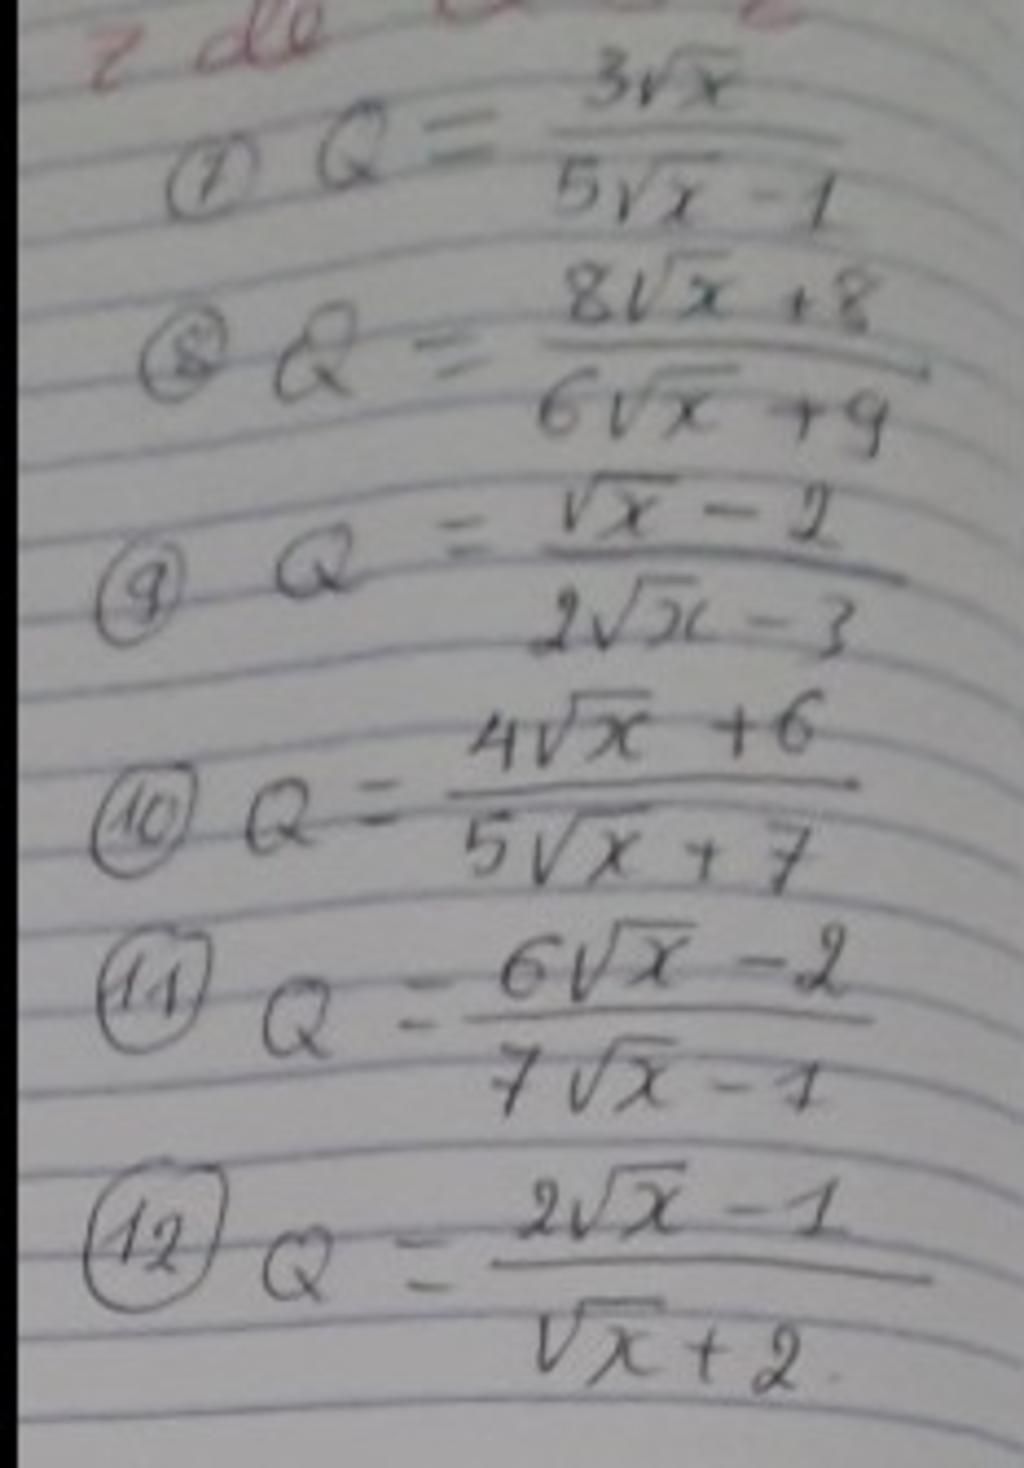 de
⑦ Q = 3√x / 5√x - 1
⑧ Q = 8√x + 8 / 6√x + 9
⑨ Q = √x - 2 / 2√x - 3
⑩ Q = 4√x + 6 / 5√x + 7
⑪ Q = 6√x - 2 / 7√x - 1
⑫ Q = 2√x - 1 / √x + 2